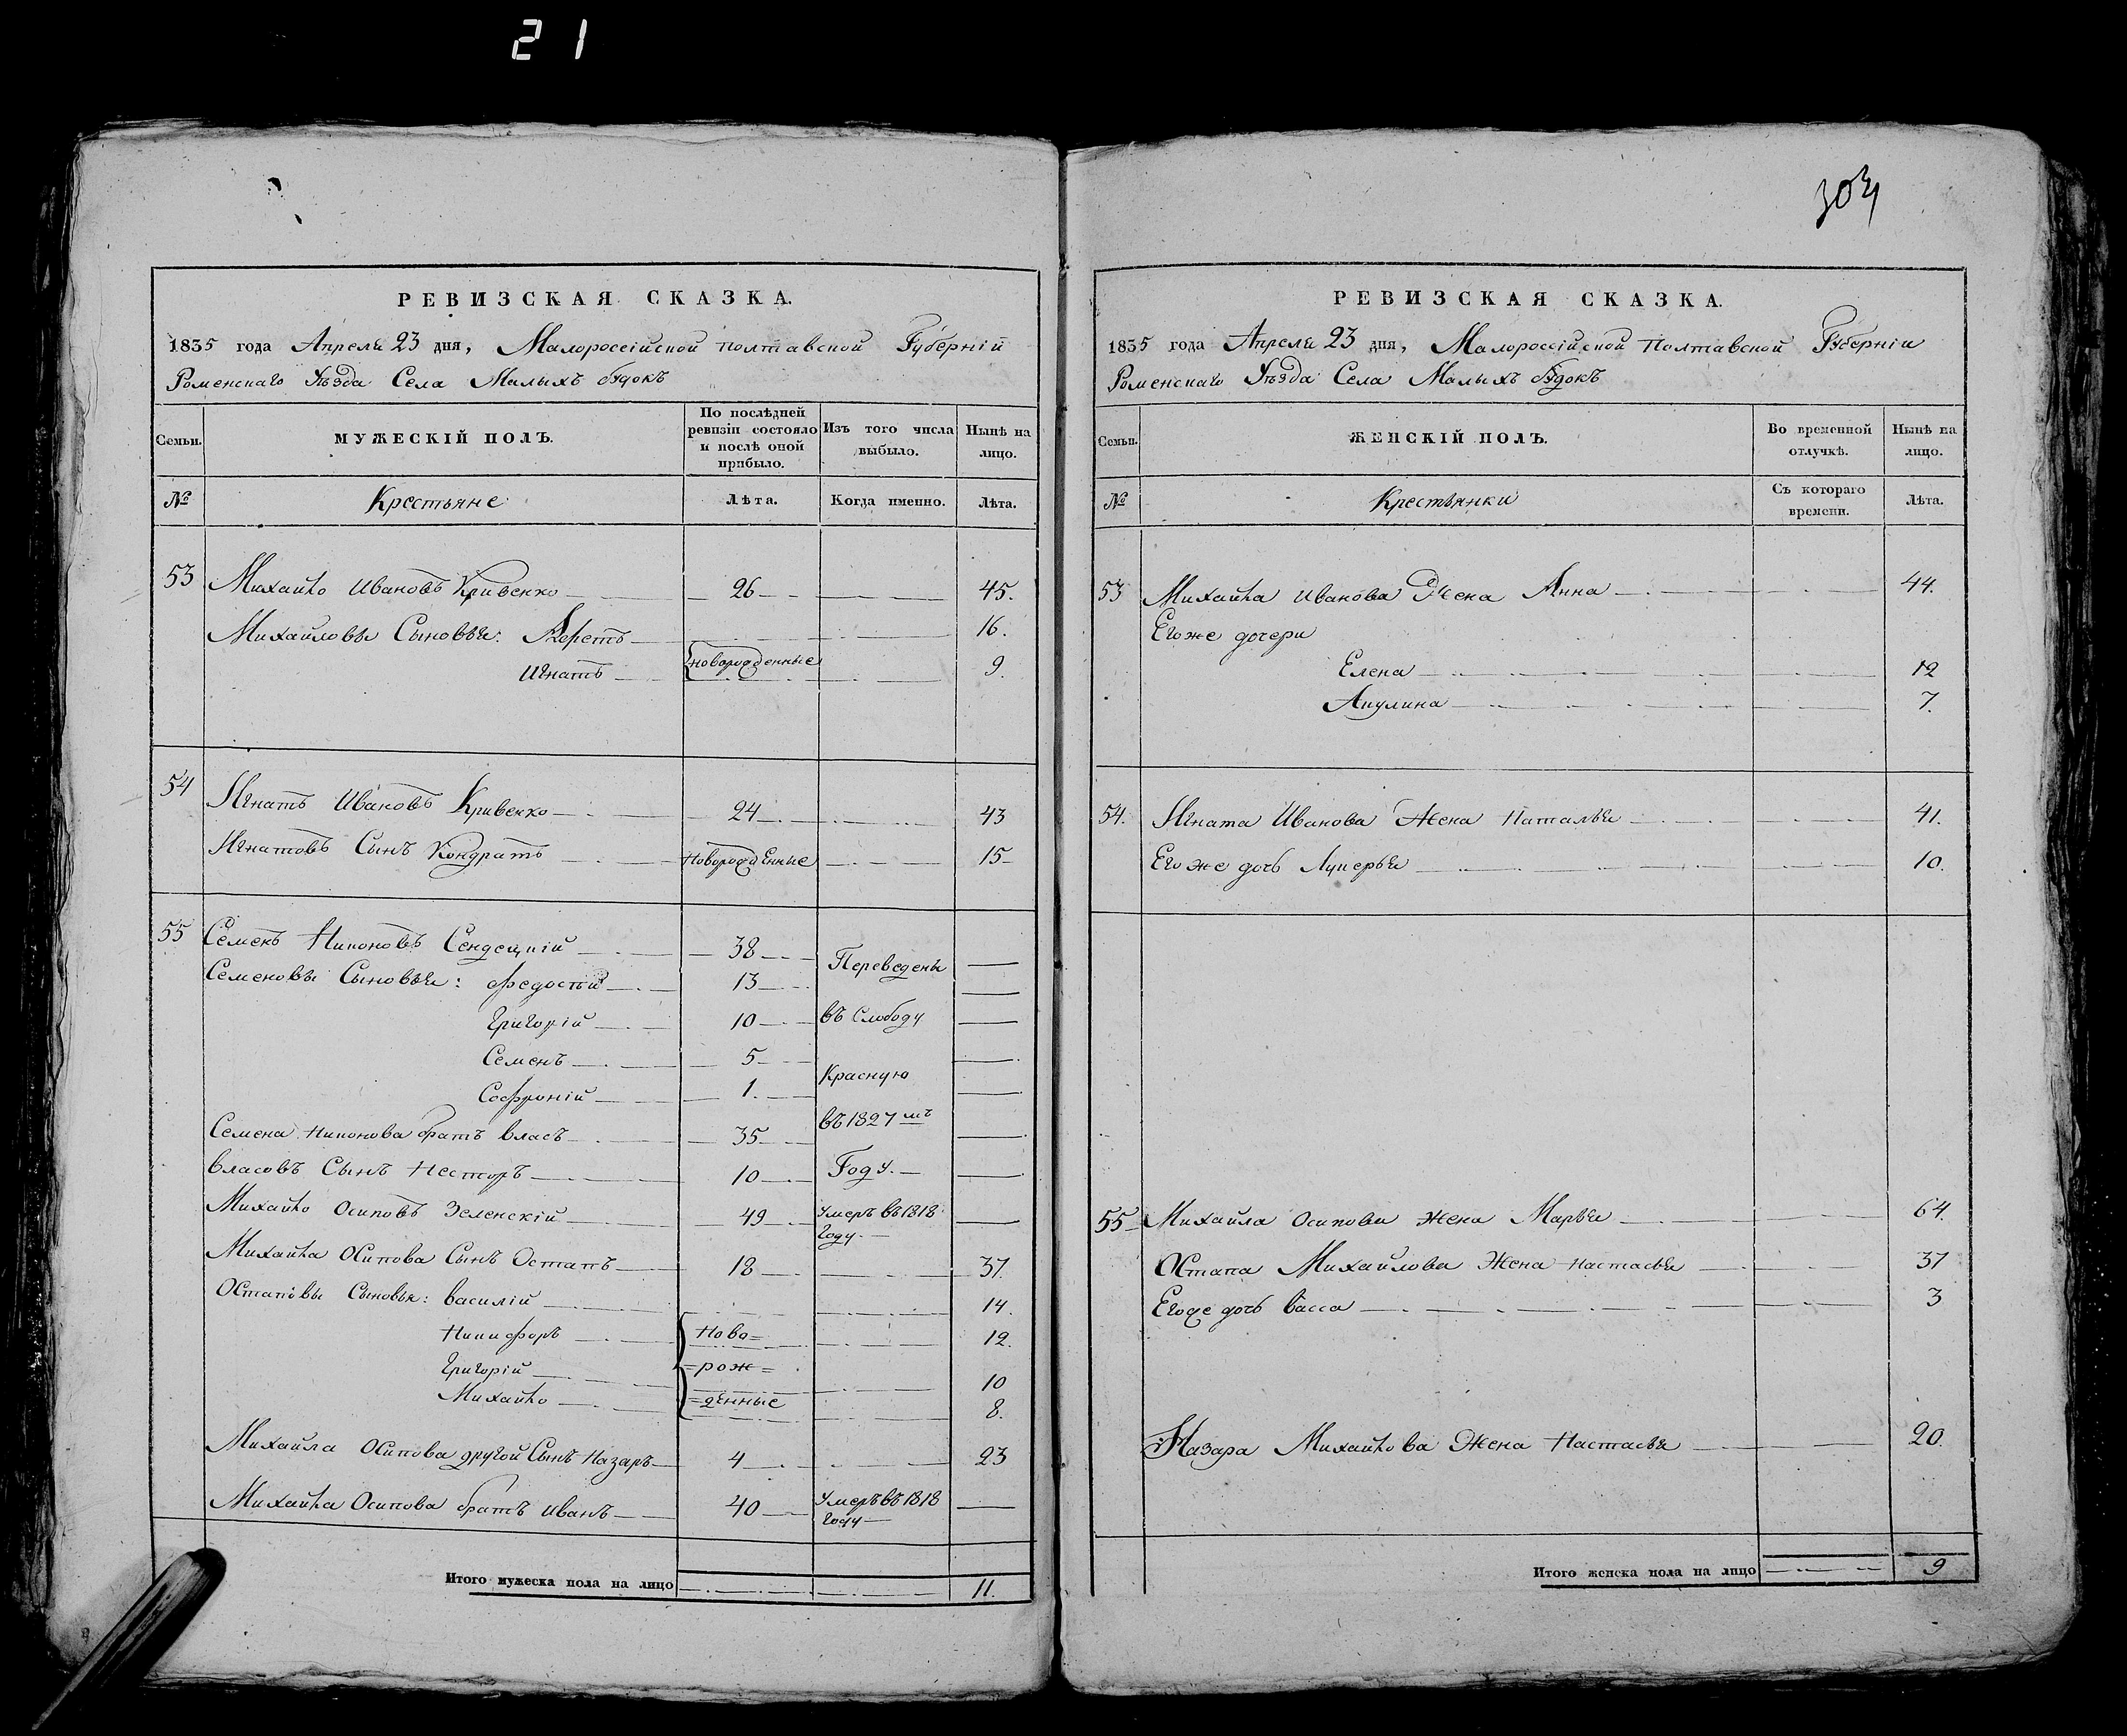 21
РЕВИЗСКАЯ СКАЗКА.
1835 года Апреля 23 дня, Малороссійской полтавской Губерніи
Роменскаго Уѣзда Села Малыхъ будокъ
Семьи. МУЖЕСКІЙ ПОЛЪ. По послѣдней ревизіи состояло и послѣ оной прибыло. Изъ того числа выбыло. Нынѣ на лицо.
№ Крестьяне Лѣта. Когда именно. Лѣта.
53 Михайло Ивановъ Кривенко 26 45.
Михайловы Сыновья: 16.
Игнатъ новорожденные 9.
54 Игнатъ Ивановъ Кривенко 24 43
Игнатовъ Сынъ Кондратъ Новорожденные 15
55 Семенъ Никоновъ 38 Переведены
Семеновы Сыновья: Федосій 13
Григорій 10 въ Слободу
Семенъ 5
Софроній 1. Красную
Семена Никонова братъ власъ 35 въ 1827мъ
власовъ Сынъ Несторъ 10 Году.
Михайло Осиповъ Зеленскій 49 Умеръ въ 1818 году.
Михайла Осипова Сынъ Остапъ 18 37.
Остаповы Сыновья: василій 14.
Никифоръ Ново= 12.
Григорій =рож= 10
Михайло =денные 8.
Михайла Осипова другой Сынъ Назаръ 4 23
Михайла Осипова братъ Иванъ 40 Умеръ въ 1818 году
Итого мужеска пола на лицо 11.
РЕВИЗСКАЯ СКАЗКА.
1835 года Апреля 23 дня, Малороссійской Полтавской Губерніи
Роменскаго Уѣзда Села Малыхъ будокъ
Семьи. ЖЕНСКІЙ ПОЛЪ. Во временной отлучкѣ. Нынѣ на лицо.
№ Крестьянки Съ котораго времени. Лѣта.
53 Михайла Иванова Жена Анна 44.
Егоже дочери
Елена 12
Акулина 7.
54. Игната Иванова Жена Наталья 41.
Его же дочь Лукерья 10.
55 Михайла Осипова жена Марья 64.
Остапа Михайлова Жена настасья 37
Егоже дочь васса 3
Назара Михайлова Жена Настасья 20.
Итого женска пола на лицо 9